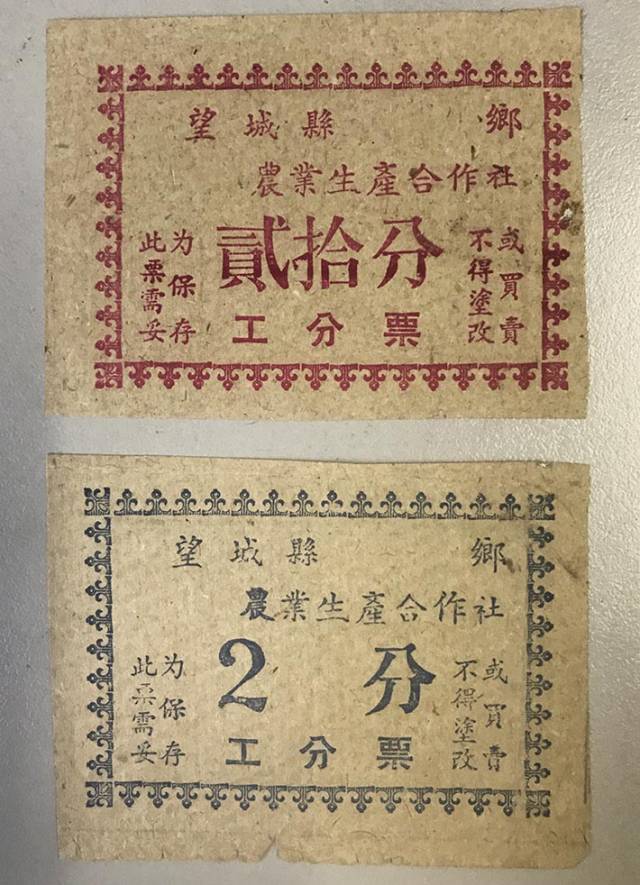 望城縣 鄉
農業生產合作社
貳拾分
工分票
此票需妥
为保存
不得塗改
或買賣
望城縣 鄉
農業生產合作社
2分
工分票
此票需妥
为保存
不得塗改
或買賣